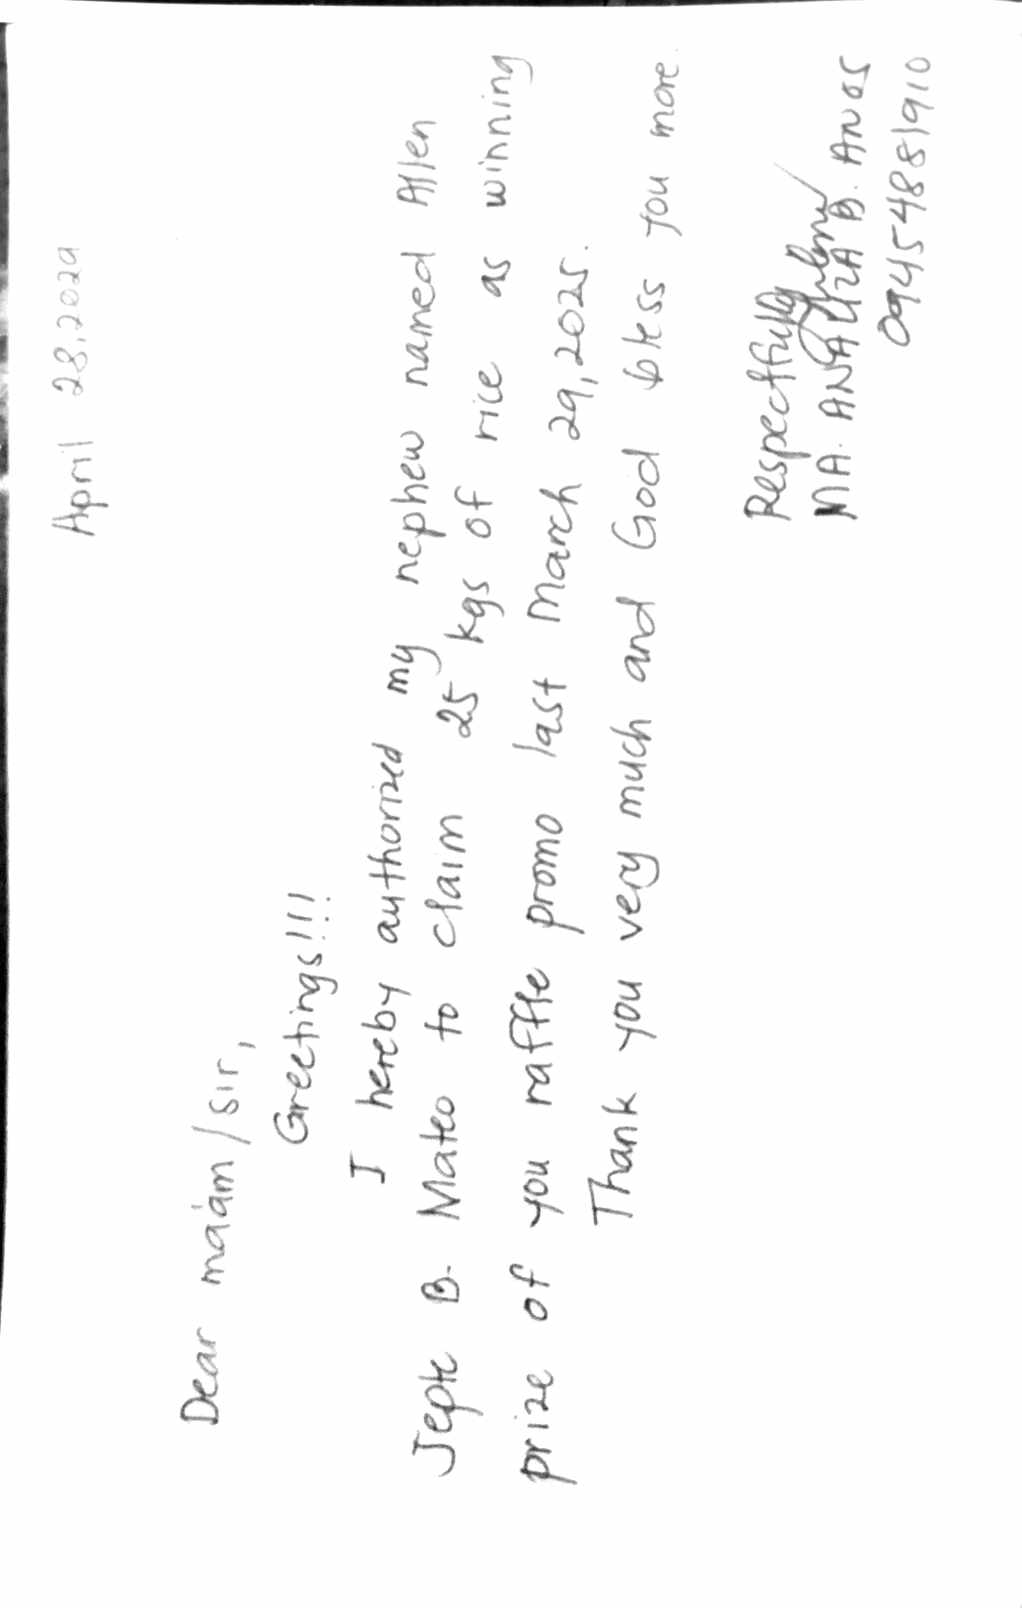 April 28, 2029
Dear ma'am/sir,
Greetings!!!
I hereby authorized my nephew named Allen
Jepte B. Mateo to claim 25 kgs of rice as winning
prize of you raffle promo last March 29, 2025.
Thank you very much and God bless you more.
Respectfully
MA. ANALIZA B. ANOS
09454881910